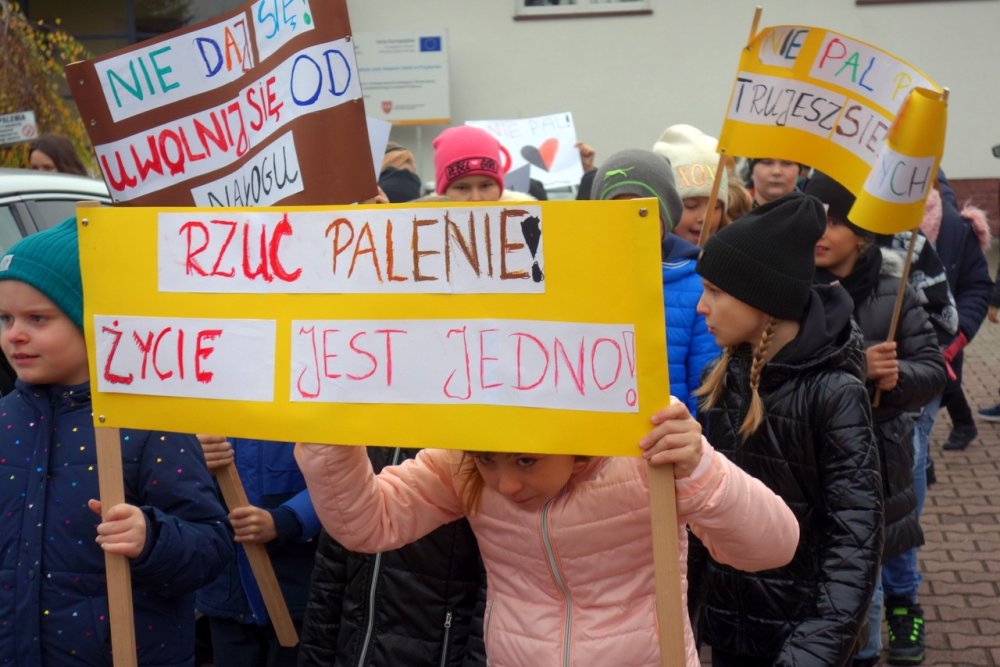 NIE DAJ SIĘ!
UWOLNIJ SIĘ OD
NAŁOGU
RZUĆ PALENIE!
ŻYCIE JEST JEDNO!
NIE PAL
NIE PAL
TRUJESZ SIE
YCH